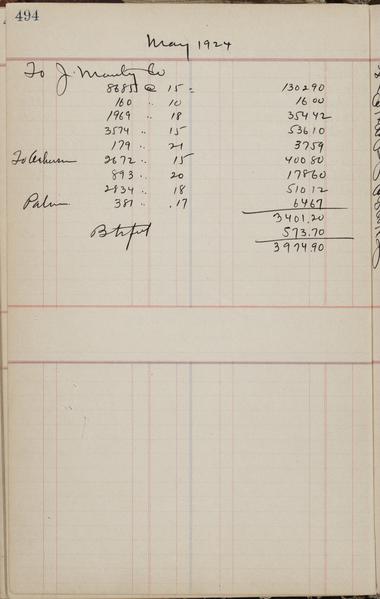 494
May 1924
To J. Manly Co
8686 @ 15 = 130290
160 " 10 16 00
1969 " 18 354 42
3574 " 15 536 10
179 " 21 37 59
To 2672 " 15 400 80
893 " 20 178 60
2834 " 18 510 12
Palm 381 " .17 64 67
3401.20
573.70
3974.90